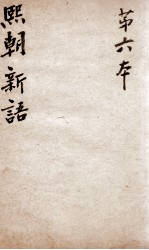 第六本
熙朝新語